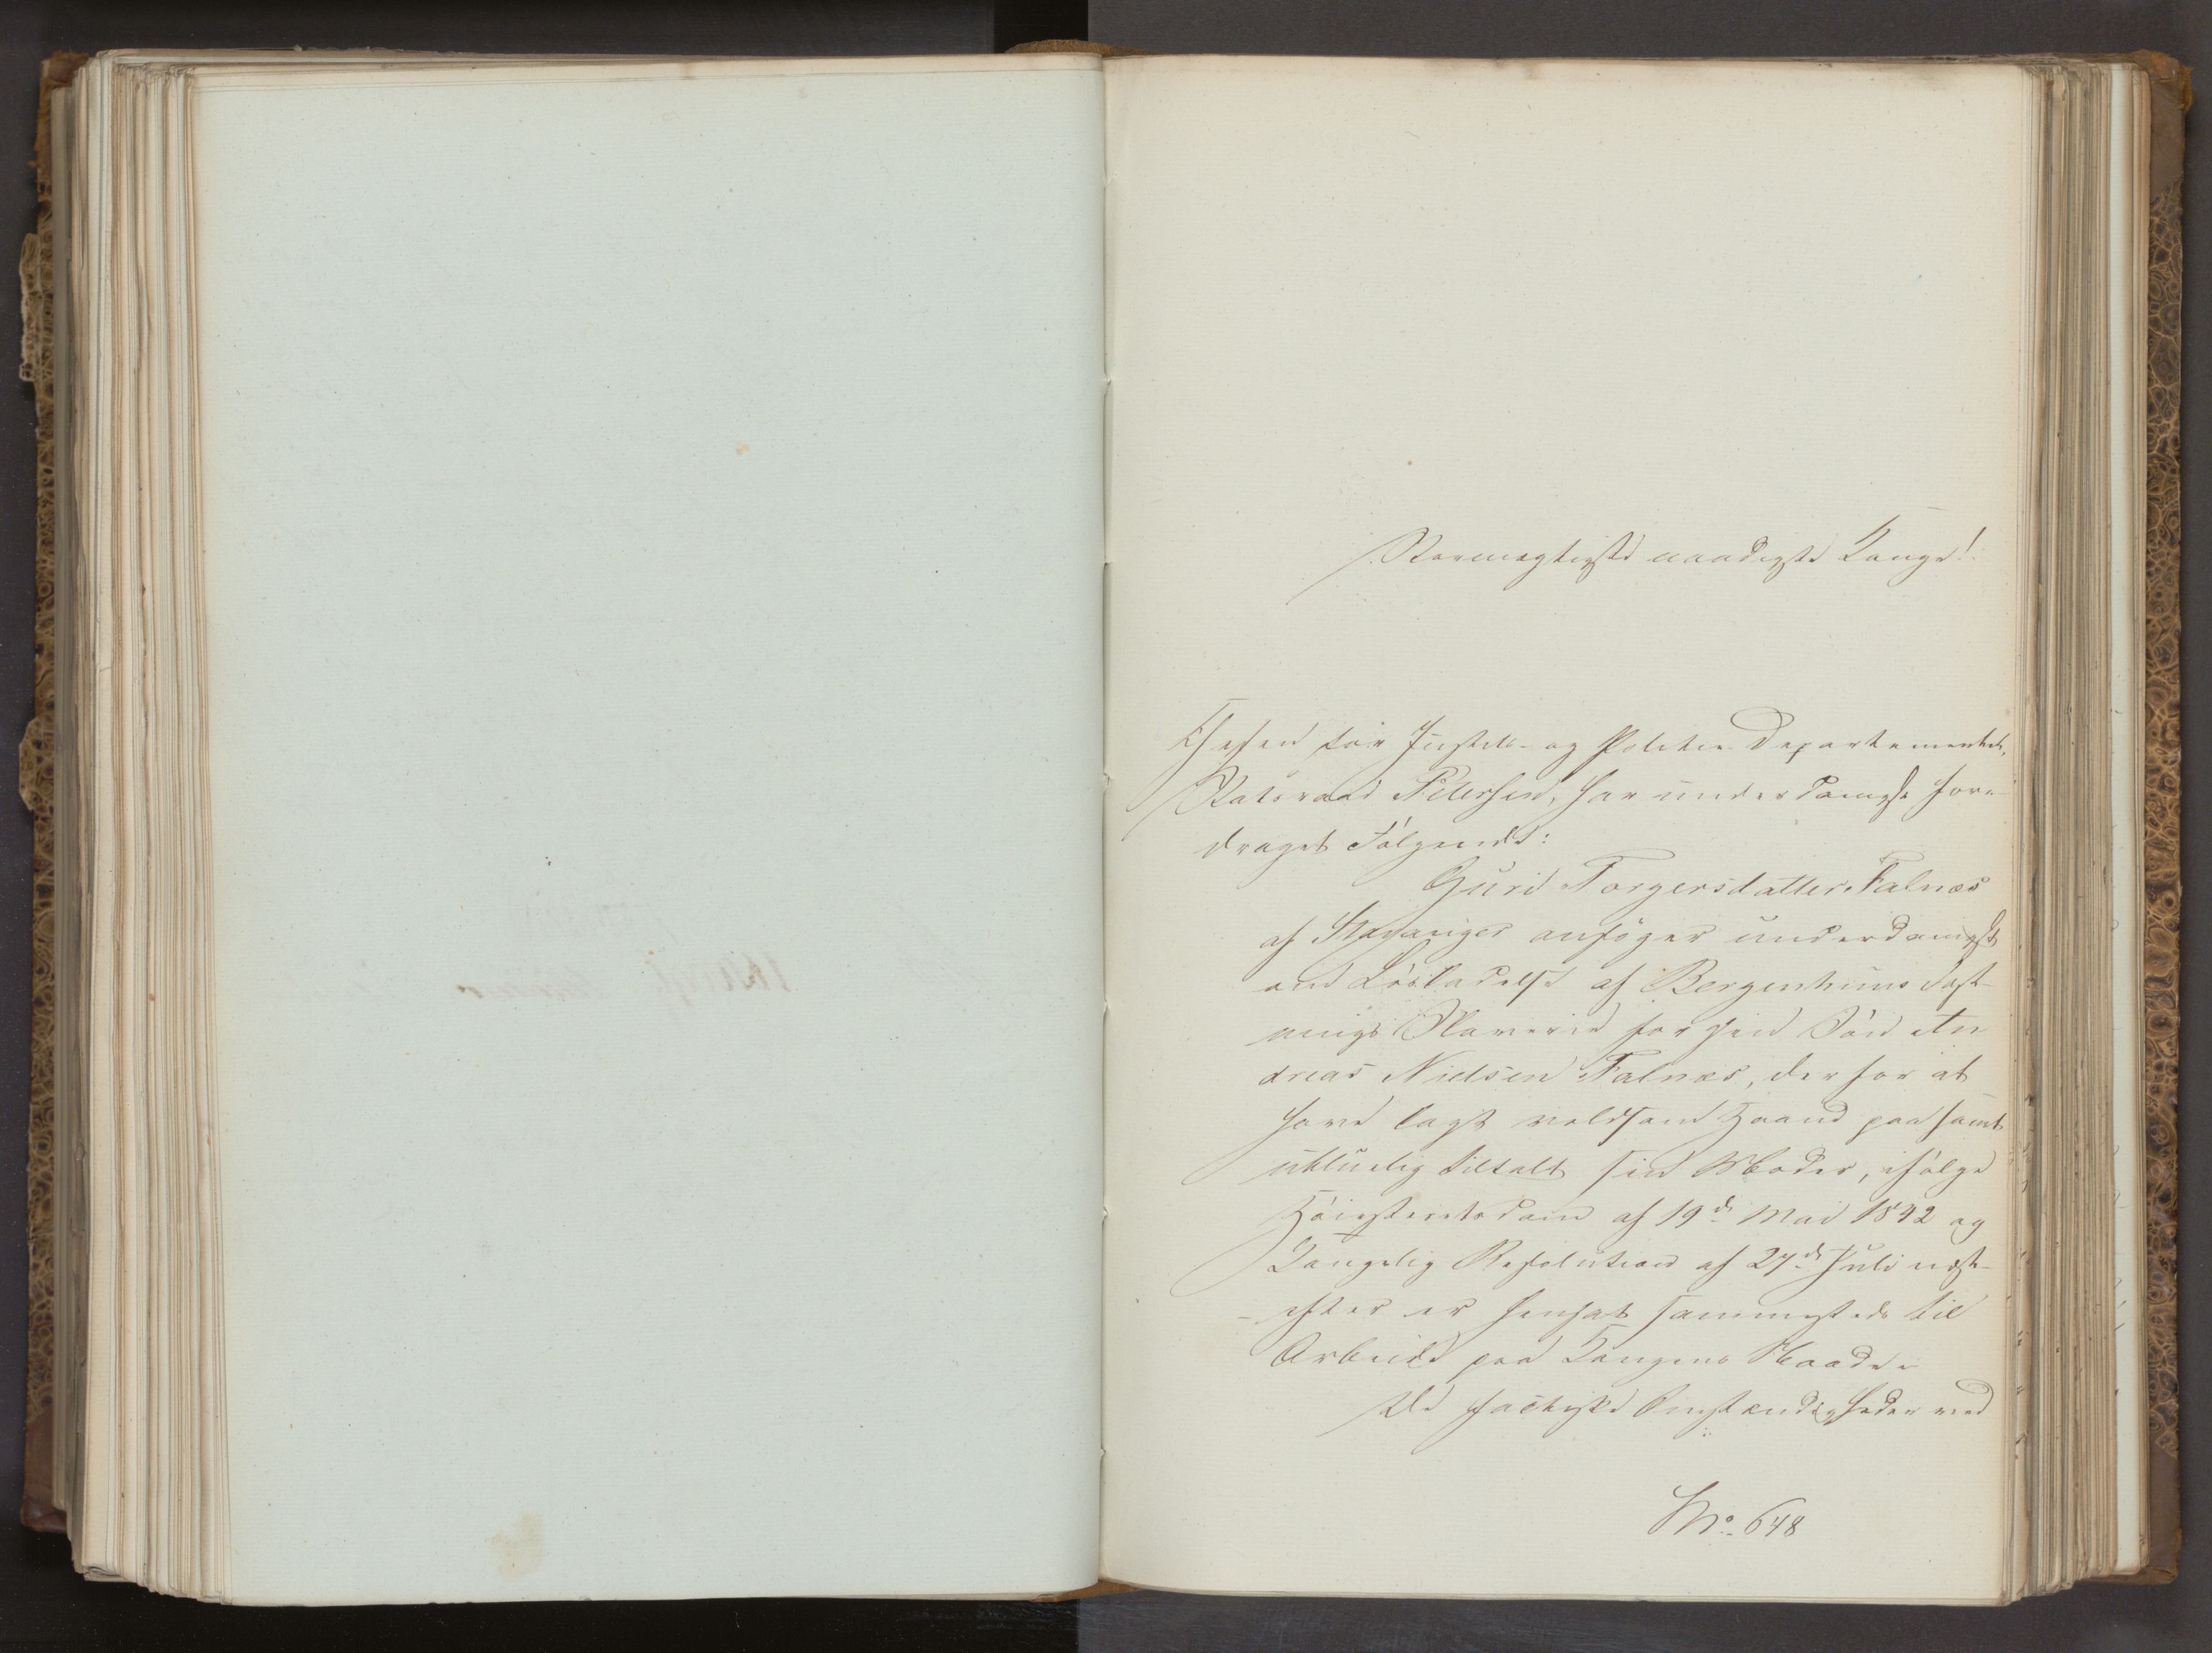 Stormægtigste naadigste Konge!
Chefen for Justits- og Politie-Departementet,
Statsraad Petersen, har underdanigst fore-
draget Følgende:
Guri Torgersdatter Falnæs
af Stavanger ansøger underdanigst
om Løsladelse af Bergenhuus Fæst-
nings Slaverie for sin Søn An
dreas Nielsen Falnæs, der for at
have lagt voldsom Haand paa samt
utilbørlig tiltalt sin Moder, ifølge
Høiesteretsdom af 19de Mai 1842 og
Kongelig Resolution af 27de Juli næst-
efter er hensat sammesteds til
Arbeide paa Kongens Naade.
De factiske Omstændigheder ved
No. 648